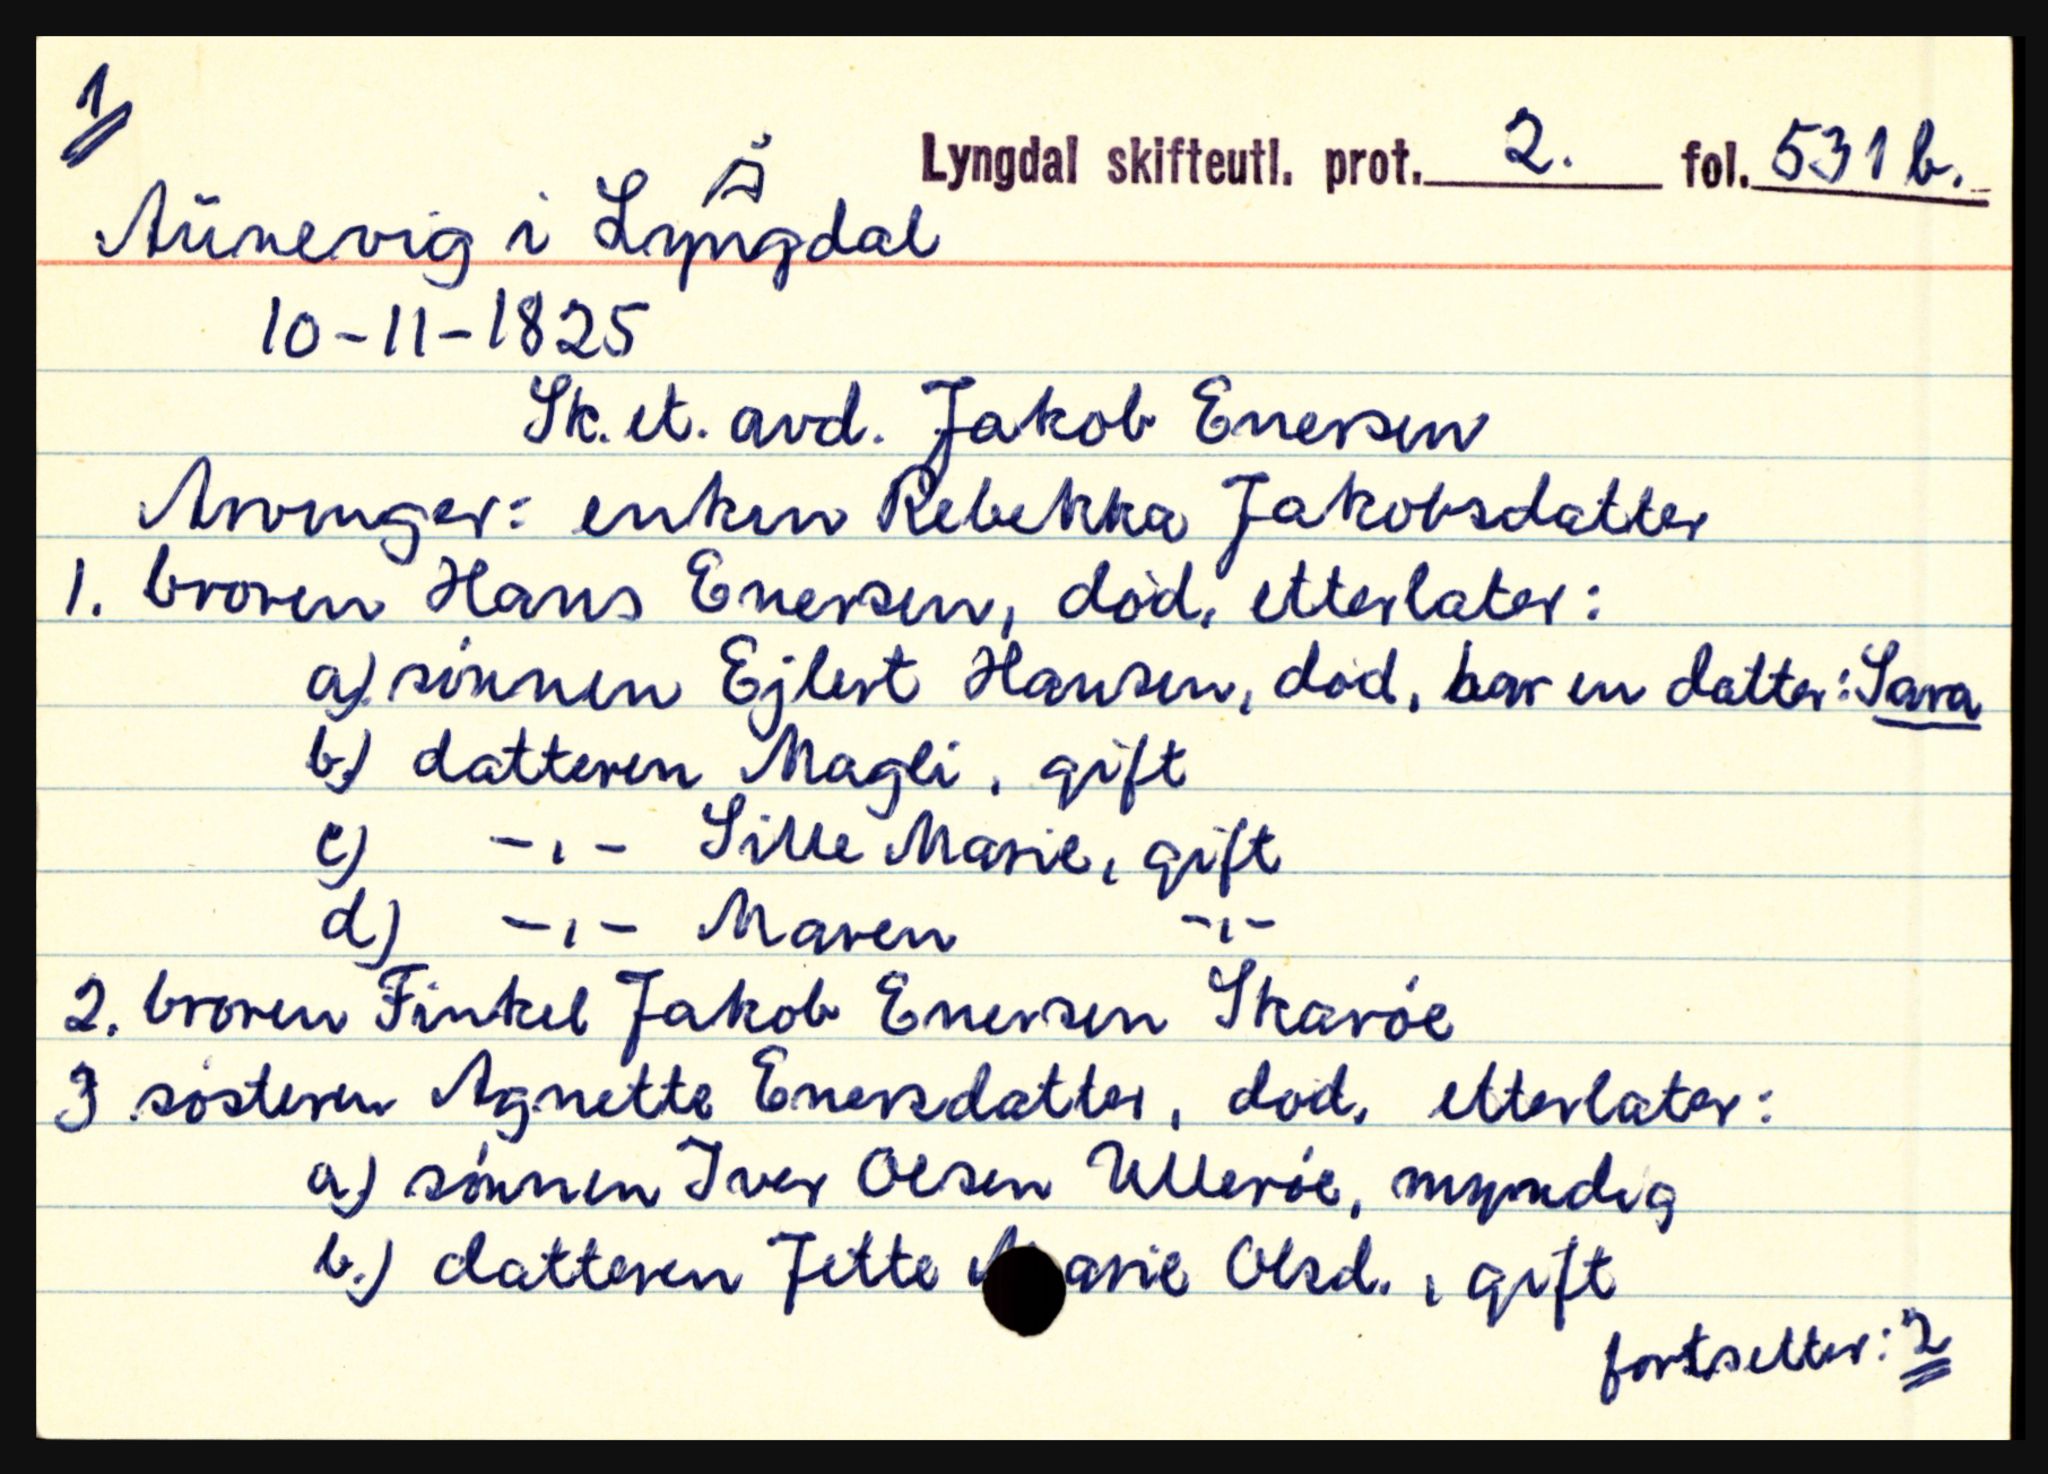 1
Lyngdal skifteutl. prot. 2. fol. 531 b.
Å
Aünevig i Lyngdal
10-11-1825
Sk. et. avd. Jakob Enersen
Arvinger: enken Rebekka Jakobsdatter
1. broren Hans Enersen, død, etterlater:
a) sønnen Ejlert Hansen, død, har en datter: Sara
b) datteren Magli, gift
c) -,- Sille Marie, gift
d) -,- Maren -,-
2. broren Finkel Jakob Enersen Skarøe
3 søsteren Agnette Enersdatter, død, etterlater:
a) sønnen Iver Olsen Ullerøe, myndig
b.) datteren Jette Marie Olsd., gift
fortsetter: 2